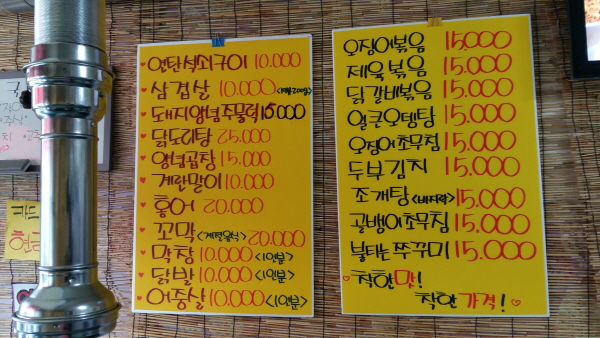 ♥연탄석쇠구이 10.000
♥삼겹살 10.000<1인분200g>
♥돼지양념주물럭 15.000
♥닭도리탕 25.000
♥양념곱창 15.000
♥계란말이 10.000
♥홍어 20.000
♥꼬막<계절음식> 20.000
♥막창 10.000<1인분>
♥닭발 10.000<1인분>
♥어중살 10.000<1인분>
오징어볶음 15.000
제육볶음 15.000
닭갈비볶음 15.000
얼큰오뎅탕 15.000
오징어초무침 15.000
두부김치 15.000
조개탕<바지락> 15.000
골뱅이초무침 15.000
불타는쭈꾸미 15.000
♥착한맛!
착한가격!♡
카드
현금